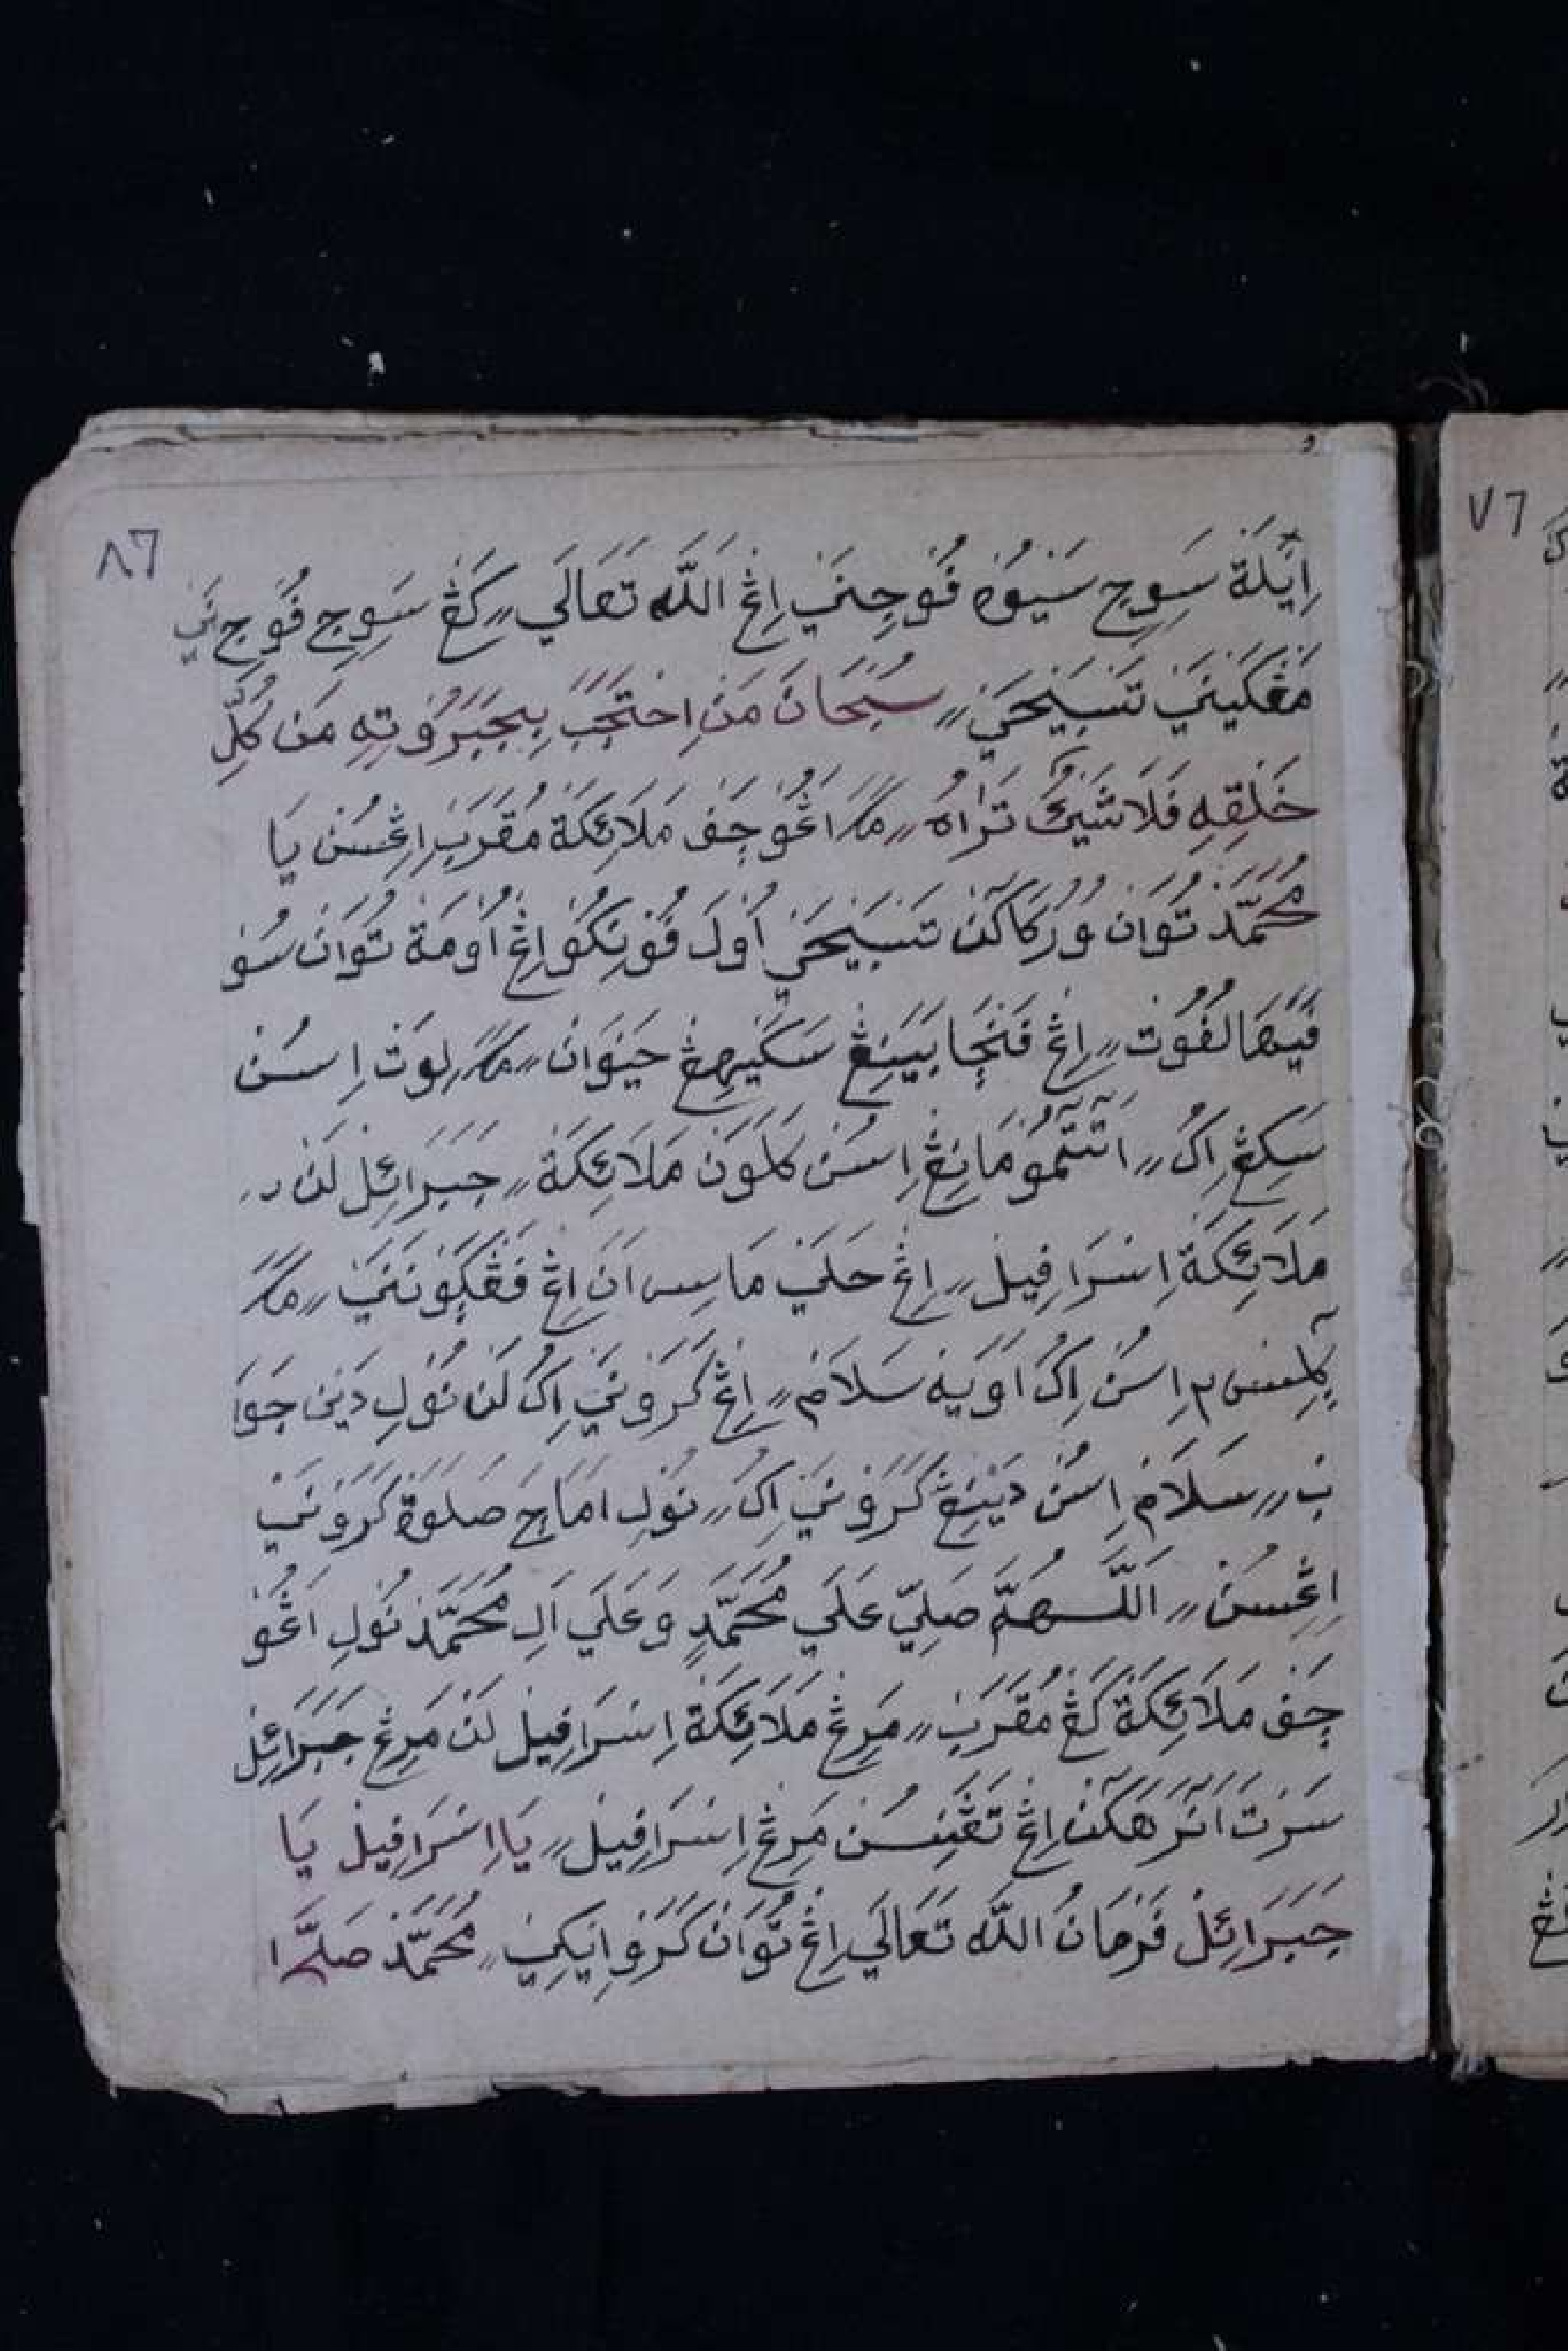 ٨٦
اِيَّلَةْ سَوِجِ سَيْوُهْ فُوْجِنَيْ اِڠْ اَللّٰه تَعَالَي ۔ كَڠْ سَوِجِ فُوَجِنَيْ
مَڠْكَيْنَيْ تَسْبِيْحَيْ ۔ سُبْحَانَ مَنِ احْتَجَبَ بِجَبَرُوْتِهِ مَنْ كُلِّ
خَلْقِهِ فَلَا شَيْئٌ تَرٰاهُ ۔ مَكَ اَڠُوْچَفْ مَلَائِكَةْ مُقَرَبْ اِڠْسُنْ يَا
مُحَمَّدْ تُوَانْ وُرُكَاكَنْ تَسْبِيْحَيْ اُوْلَ فُوْنِكُوْ اِڠْ اُوْمَةْ تُوَانْ سُوْ
فَيَهَا لُفُوْتْ ۔ اِڠْ فَنْچَا بَيَنِڠْ سَكَيْهِڠْ حَيَوَانْ ۔ مَكَ لِوَتْ اِسُنْ
سَكِڠْ اِكُ ۔ اَتَتَمُوْمَانِڠْ اِسُنْ كَلَوَنْ مَلَائِكَةْ ۔ جَبَرَائِلْ لَنْ
مَلَائِكَةْ اِسْرَافِيْلْ ۔ اِڠْ حَلَيْ مَاسِه اَنَ اِڠْ فَڠْڮَوْنَنَيْ ۔ مَكَ
اِسُنْ اِكُ اَوَيْهْ سَلَامْ ۔ اِڠْ كَرَوْنَيْ اِكُ لَنْ نُوْلِ دَيْنْ جَوَا
بْ ۔ سَلَامْ اِسُنْ دَيْنِڠْ كَرَوْنَيْ اِكُ ۔ نُوْلِ اَمَاچَ صَلَوةْ كَرَوْنَيْ
اِڠْسُنْ ۔ اَللّٰهُمَّ صَلِيّ عَلَي مُحَمَّدٍ وَعَلَي اَلِ مُحَمَّدْ نُوْلِ اَڠُوْ
چَفْ مَلَائِكَةْ كَڠْ مُقَرَبْ ۔ مَرِڠْ مَلَائِكَةْ اِسْرَافِيْلْ لَنْ مَرِڠْ جَبَرَائِلْ
سَرْتَ اَنَرَهَكَنْ اِڠْ تَڠَنِسُنْ مَرِڠْ اِسْرَافِيْلْ ۔ يَا اِسْرَافِيْلْ يَا
جَبَرَائِلْ فَرْمَانُ اللّٰه تَعَالَي اِڠْ تُوَانْ كَرَوْ اِيْكِيْ ۔ مُحَمَّدْ صَلَّي ا
٧٦